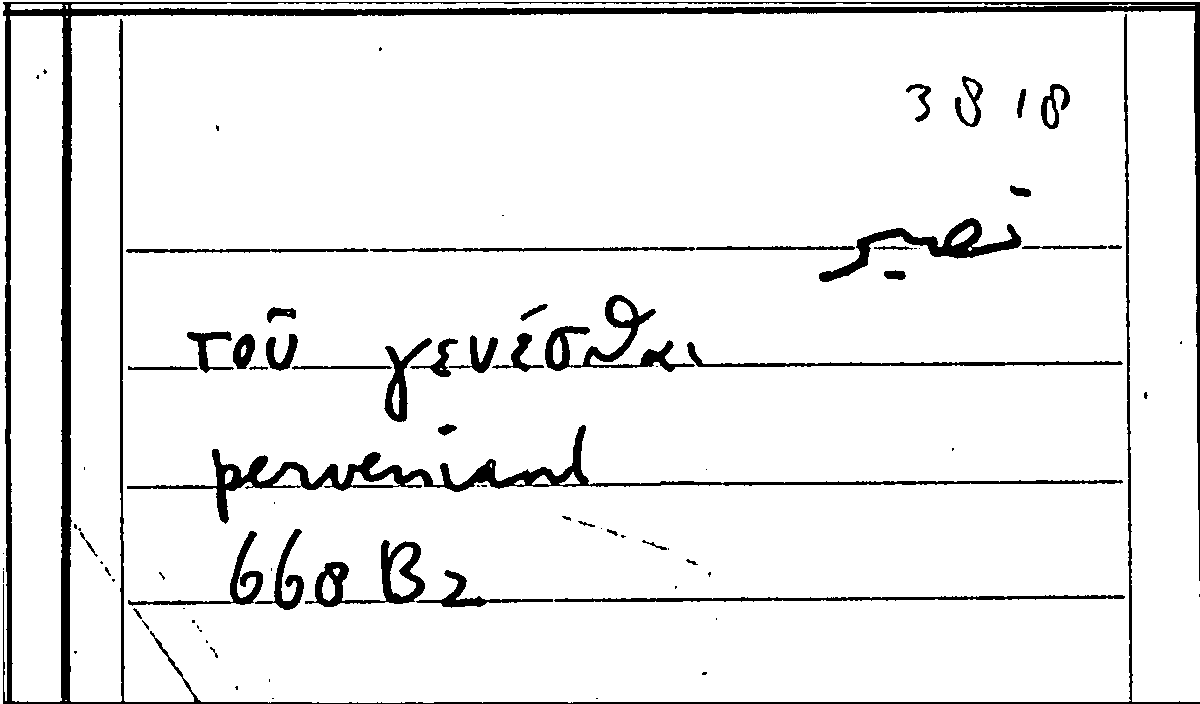 3818
τοῦ γενέσθαι
perveniant
668 B2